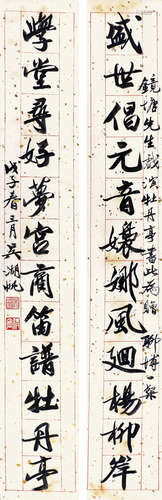 盛世倡元音嬝娜風迴楊柳岸
鏡塘先生戲演牡丹亭書此為贈聊博一粲
學堂尋好夢宮商笛譜牡丹亭
戊子春三月吳湖帆